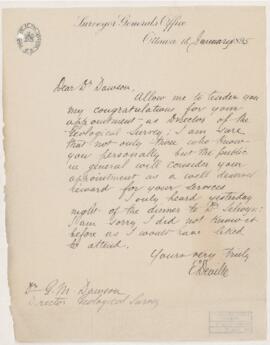 Surveyor General's Office
Ottawa 12 January 1895
Dear Dr Dawson,
Allow me to tender you
my congratulations for your
appointment as Director of the
Geological Survey; I am sure
that not only those who know
you personally but the public
in general will consider your
appointment as a well deserved
reward for your services
I only heard yesterday
night of the dinner to Dr Selwyn:
I am sorry I did not know it
before as I would have liked
to attend.
Yours very truly
E. Deville
Dr G. M. Dawson
Director Geological Survey